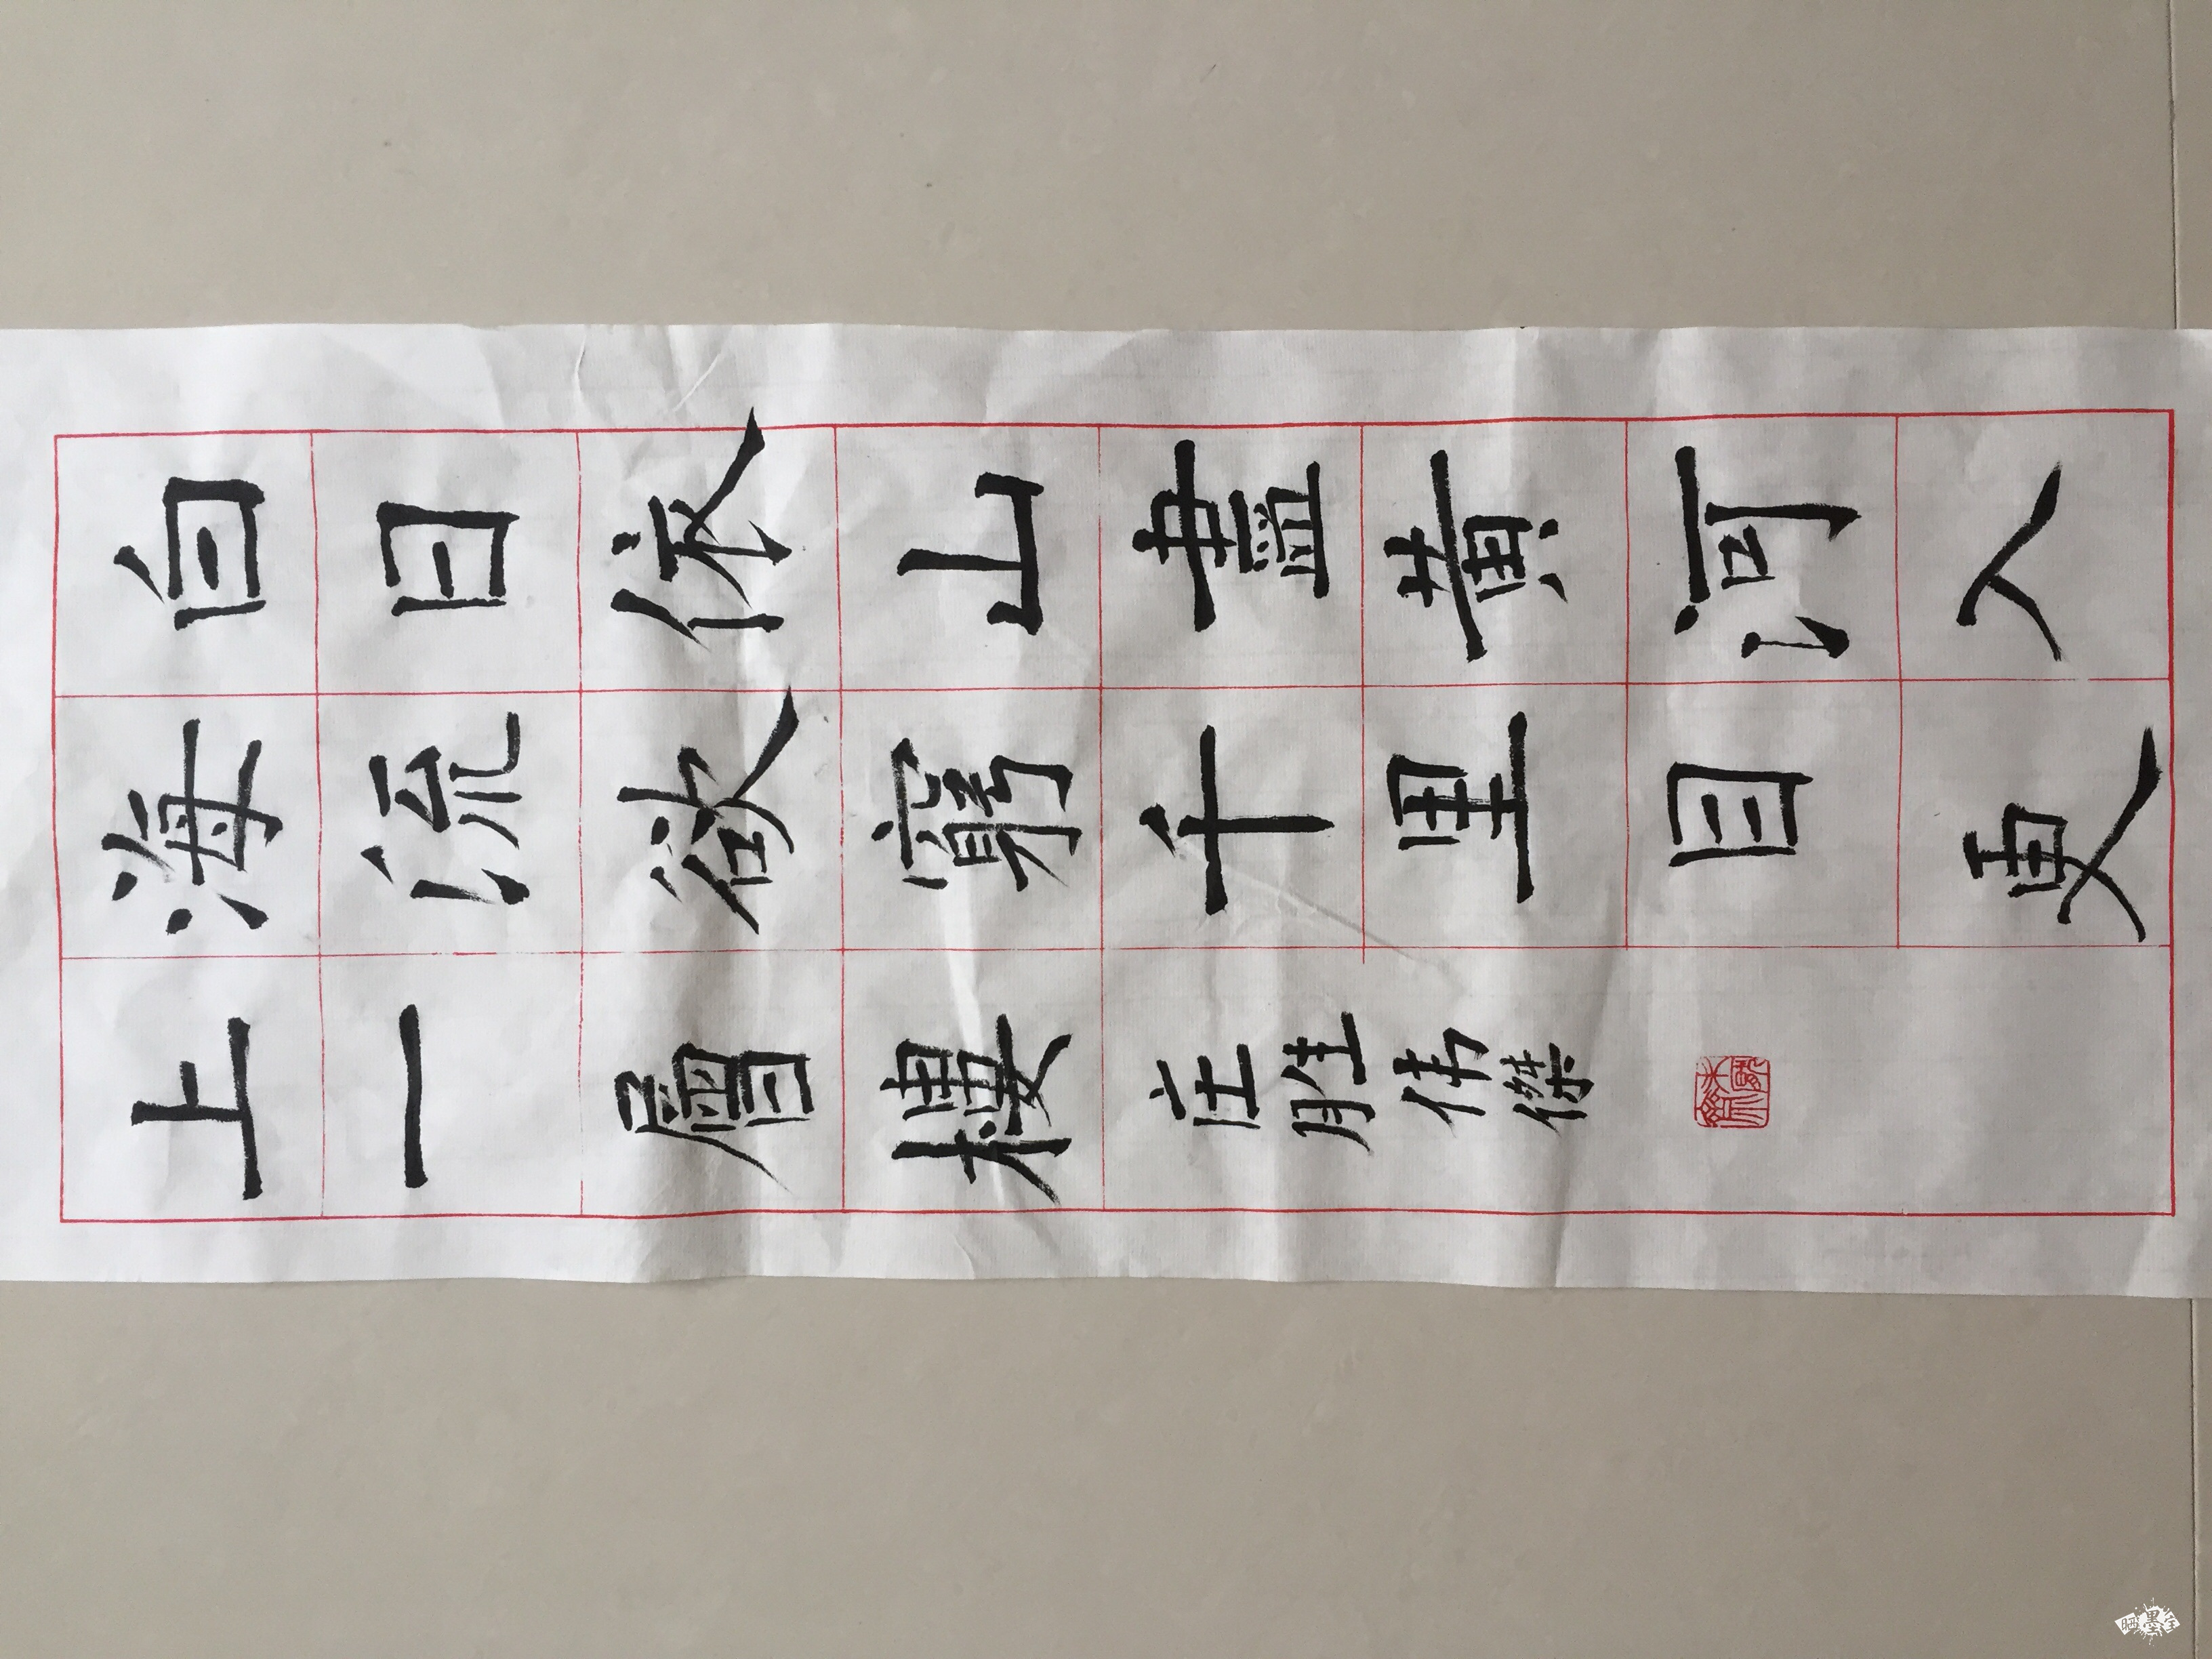 白日依山盡黄河入
海流欲窮千里目更
上一層樓庄胜伟傑
晒墨宝